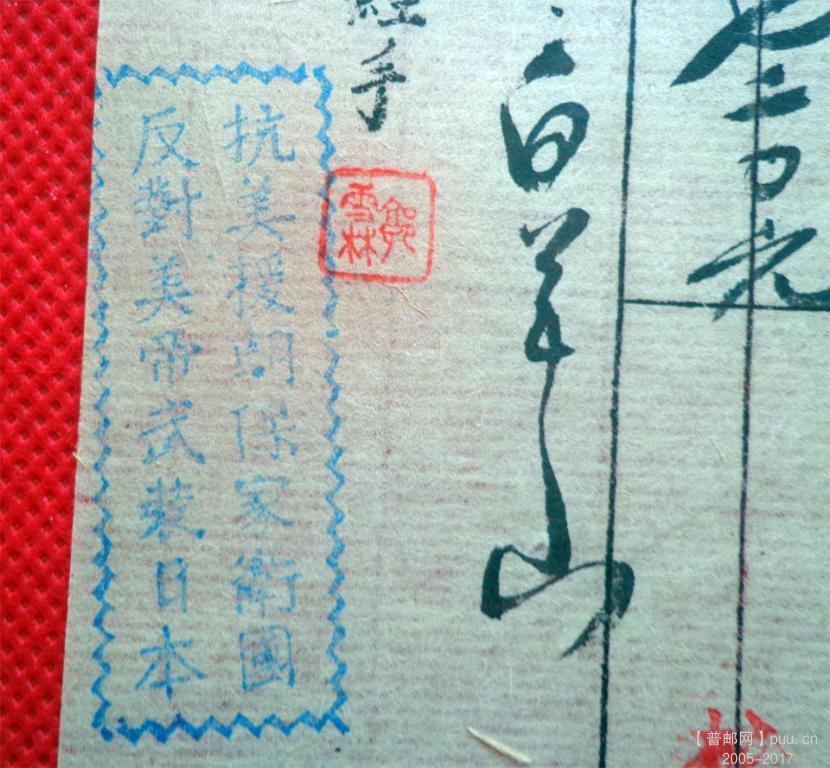 万元
白羊山
經手
郭雪林
抗美援朝保家衛國
反對美帝武裝日本
【普邮网】puu.cn
2005-2017